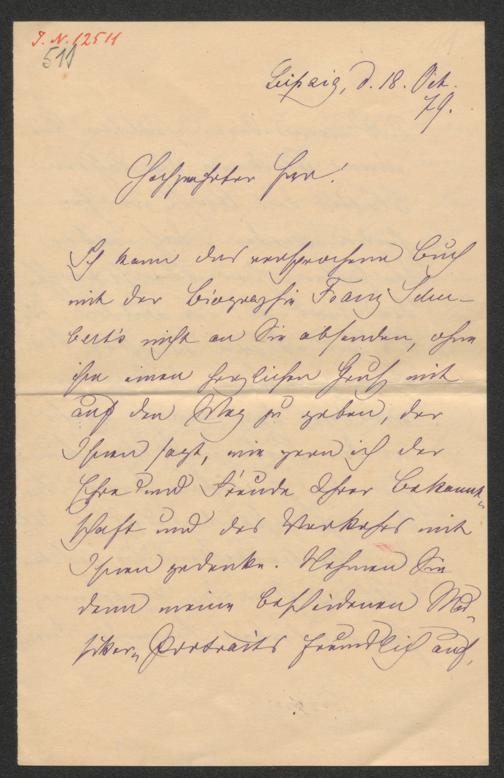 I. N. 12511
511
Leipzig, d. 18. Oct.
79.
Hochgeehrter Herr!
Ich kann das versprochene Buch
mit der Biographie Franz Schu-
bert's nicht an Sie absenden, ohne
ihm einen herzlichen Gruß mit
auf den Weg zu geben, der
Ihnen sagt, wie gern ich der
Ehre und Freude Ihrer Bekannt-
schaft und des Verkehrs mit
Ihnen gedenke. Nehmen Sie
denn meine bescheidenen Mu-
siker-Portraits freundlich auf,